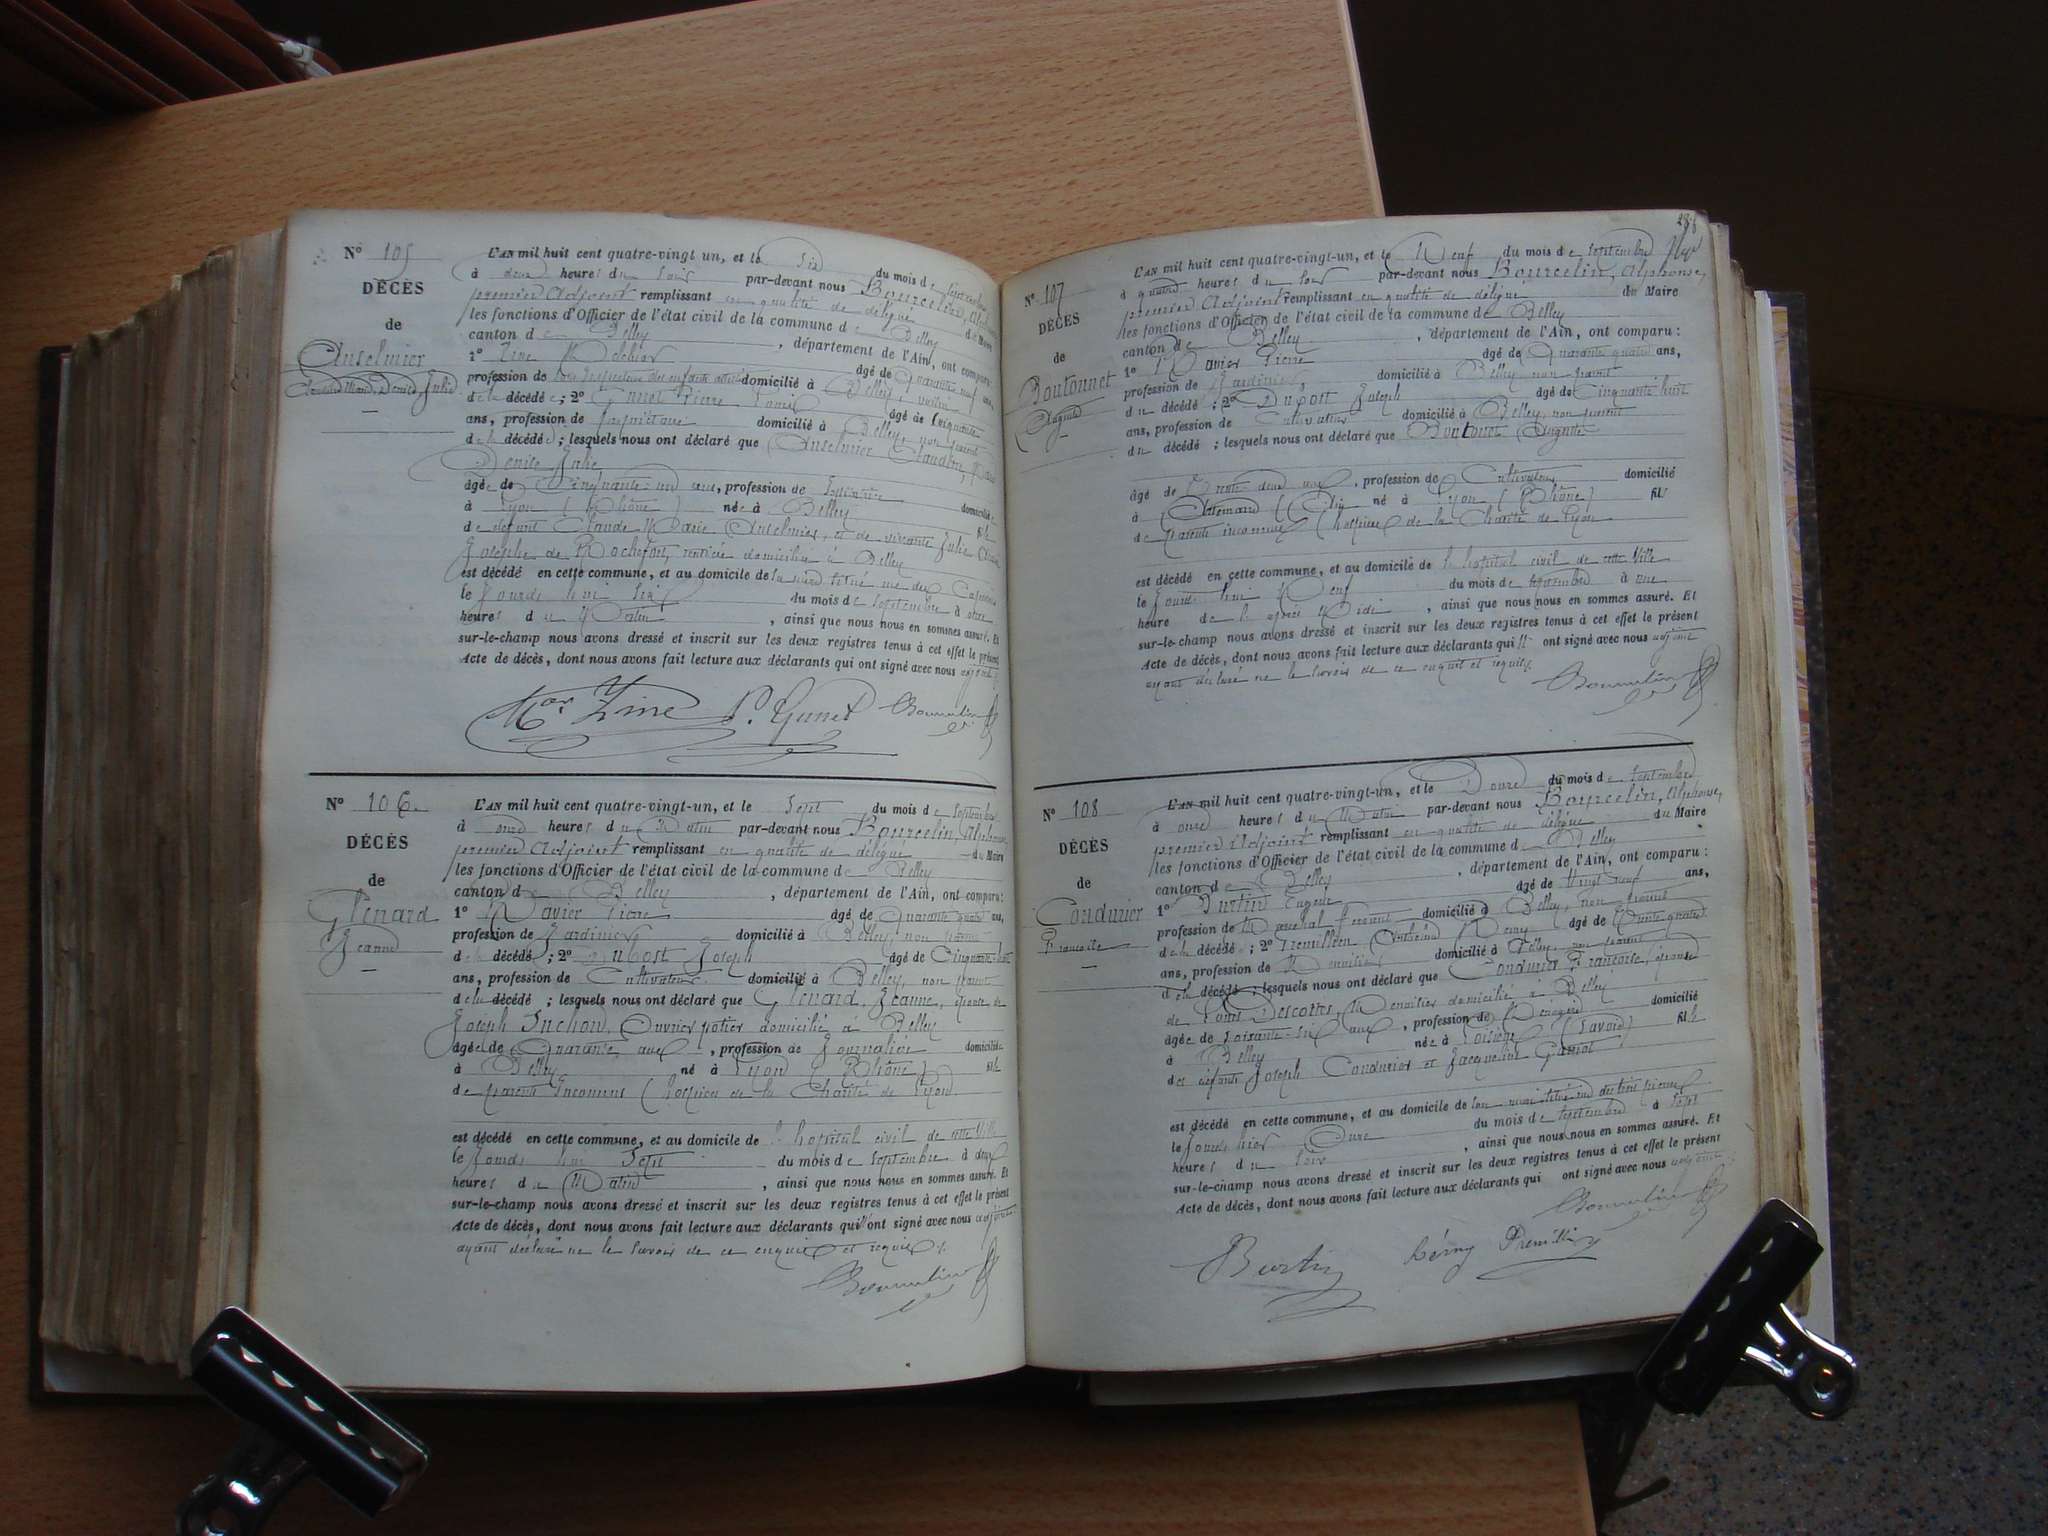 Nº 105
DÉCÈS
de
Anselmier
Claudine Marie Denise Julie
L'AN mil huit cent quatre-vingt un, et le Six du mois de Septembre
à deux heures du Soir par-devant nous Bourcelin, Alphonse
premier Adjoint remplissant en qualité de délégué du Maire
les fonctions d'Officier de l'état civil de la commune de Belley
canton de Belley, département de l'Ain, ont comparu:
1º âgé de Quarante neuf ans,
profession de domicilié à Belley, voisin
de la décédée; 2º Pierre âgé de Cinquante
ans, profession de propriétaire domicilié à Belley, non parent
de la décédée; lesquels nous ont déclaré que Anselmier Claudine, Marie
Denise Julie
âgée de Cinquante un ans, profession de domiciliée
à Lyon (Rhône) née à Belley fille
de défunt Claude Marie Anselmier, et de vivante Julie
Josephe de Rochefort, rentière domiciliée à Belley
est décédé en cette commune, et au domicile de sa mère rue des
le Jourd'hui Six du mois de Septembre à onze
heures du Matin, ainsi que nous nous en sommes assuré. Et
sur-le-champ nous avons dressé et inscrit sur les deux registres tenus à cet effet le présent
Acte de décès, dont nous avons fait lecture aux déclarants qui ont signé avec nous adjoint
Nº 106
DÉCÈS
de
Glénard
Jeanne
L'AN mil huit cent quatre-vingt-un, et le Sept du mois de Septembre
à onze heures du Matin par-devant nous Bourcelin, Alphonse
premier Adjoint remplissant en qualité de délégué du Maire
les fonctions d'Officier de l'état civil de la commune de Belley
canton de Belley, département de l'Ain, ont comparu:
1º Pierre âgé de Quarante quatre ans,
profession de Jardinier domicilié à Belley, non parent
de la décédée; 2º Dubost Joseph âgé de Cinquante huit
ans, profession de Cultivateur domicilié à Belley, non parent
de la décédé; lesquels nous ont déclaré que Glénard, Jeanne, épouse de
Joseph Ouvrier potier domicilié à Belley
âgée de Quarante ans, profession de Journalière domiciliée
à Belley né à Lyon (Rhône) fille
de parents Inconnus (hospice de la Charité de Lyon)
est décédé en cette commune, et au domicile de l'hopital civil de cette Ville
le Jourd'hui Sept du mois de Septembre à deux
heures du Matin, ainsi que nous nous en sommes assuré. Et
sur-le-champ nous avons dressé et inscrit sur les deux registres tenus à cet effet le présent
Acte de décès, dont nous avons fait lecture aux déclarants qui n'ont signé avec nous adjoint
ayant déclaré ne le savoir de ce enquis et requis
Nº 107
DÉCÈS
de
Boutonnet
Auguste
L'AN mil huit cent quatre-vingt-un, et le Neuf du mois de Septembre
à quatre heures du Soir par-devant nous Bourcelin, Alphonse,
premier Adjoint remplissant en qualité de délégué du Maire
les fonctions d'Officier de l'état civil de la commune de Belley
canton de Belley, département de l'Ain, ont comparu:
1º Pierre âgé de Quarante quatre ans,
profession de Jardinier domicilié à Belley non parent
du décédé; 2º Dubost Joseph âgé de Cinquante huit
ans, profession de Cultivateur domicilié à Belley, non parent
du décédé; lesquels nous ont déclaré que Boutonnet Auguste
âgé de Trente deux ans, profession de Cultivateur domicilié
à (Ain) né à Lyon (Rhône) fils
de parents inconnus (hospice de la Charité de Lyon
est décédé en cette commune, et au domicile de l'hopital civil de cette Ville
le Jourd'hui Neuf du mois de Septembre à une
heure de l'après Midi, ainsi que nous nous en sommes assuré. Et
sur-le-champ nous avons dressé et inscrit sur les deux registres tenus à cet effet le présent
Acte de décès, dont nous avons fait lecture aux déclarants qui n' ont signé avec nous adjoint
ayant déclaré ne le savoir de ce enquis et requis
Nº 108
DÉCÈS
de
Condurier
Françoise
L'AN mil huit cent quatre-vingt-un, et le Douze du mois de Septembre
à onze heures du Matin par-devant nous Bourcelin, Alphonse,
premier Adjoint remplissant en qualité de délégué du Maire
les fonctions d'Officier de l'état civil de la commune de Belley
canton de Belley, département de l'Ain, ont comparu:
1º Burtin Eugène âgé de Vingt neuf ans,
profession de Maréchal ferrant domicilié à Belley, non parent
de la décédée; 2º Rémy âgé de Trente quatre
ans, profession de Menuisier domicilié à Belley, non parent
de la décédée; lesquels nous ont déclaré que Condurier Françoise, épouse
de Louis Descottes, Menuisier domicilié à Belley
âgée de Soixante-six ans, profession de Ménagère domicilié
à Belley née à (Savoie) fille
des défunts Joseph Condurier et Jacqueline
est décédé en cette commune, et au domicile de son mari
le Jourd'hier Onze du mois de Septembre à sept
heures du Soir, ainsi que nous nous en sommes assuré. Et
sur-le-champ nous avons dressé et inscrit sur les deux registres tenus à cet effet le présent
Acte de décès, dont nous avons fait lecture aux déclarants qui ont signé avec nous adjoint
Burtin